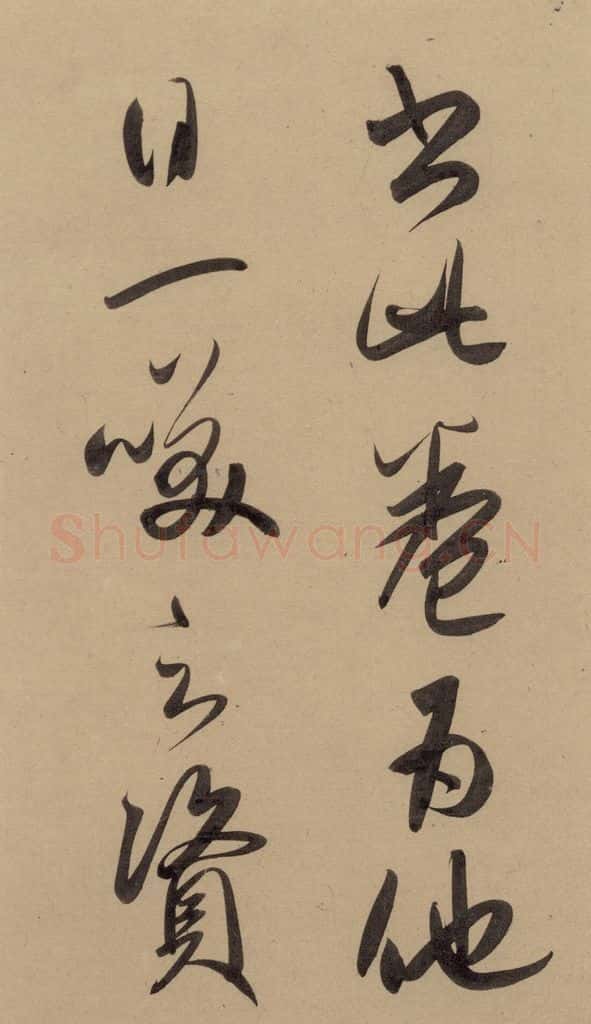 书此卷为他
日一噱之资
Shufawang.CN